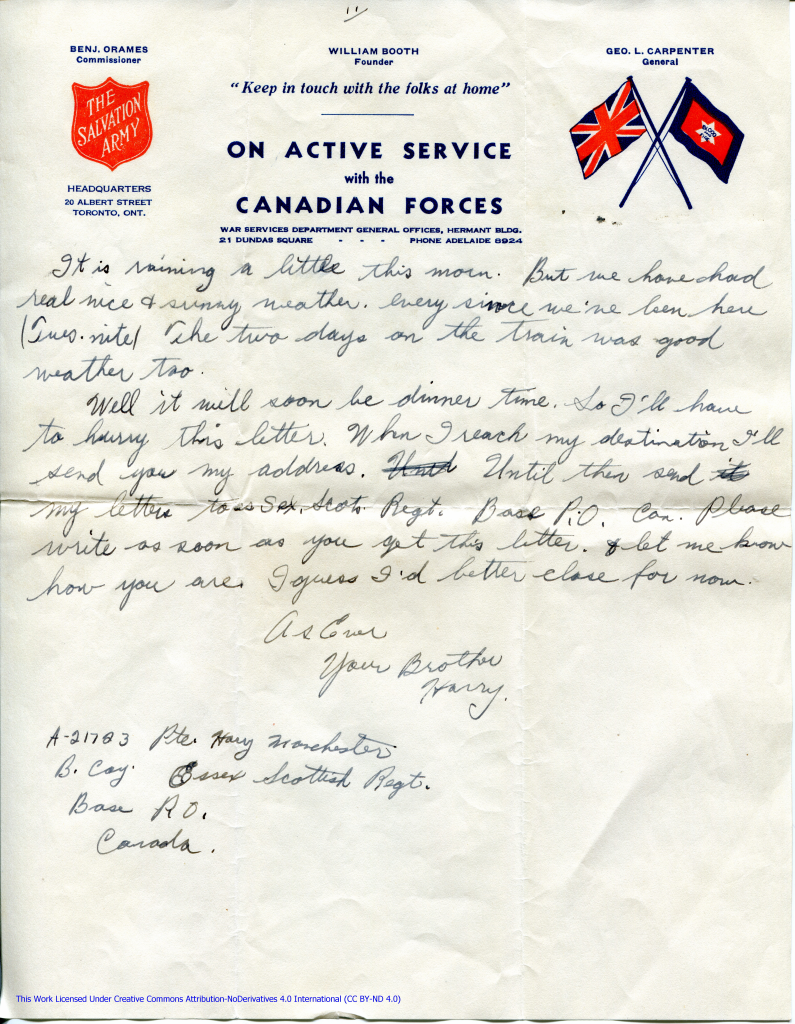 11
BENJ. ORAMES
Commissioner
WILLIAM BOOTH
Founder
GEO. L. CARPENTER
General
"Keep in touch with the folks at home"
THE
SALVATION
ARMY
ON ACTIVE SERVICE
with the
CANADIAN FORCES
HEADQUARTERS
20 ALBERT STREET
TORONTO, ONT.
WAR SERVICES DEPARTMENT GENERAL OFFICES, HERMANT BLDG.
21 DUNDAS SQUARE - - - PHONE ADELAIDE 8924
It is raining a little this morn. But we have had
real nice & sunny weather. every since we've been here
(Tues. nite) The two days on the train was good
weather too.
Well it will soon be dinner time. So I'll have
to hurry this letter. When I reach my destination I'll
send you my address. Until then send
my letters to Scots. Regt. Base P.O. Can. Please
write as soon as you get this letter. & let me know
how you are. I guess I'd better close for now.
As Ever
Your Brother
Harry.
A-21783 Pte. Harry Manchester
B. Coy. Essex Scottish Regt.
Base P.O.
Canada.
This Work Licensed Under Creative Commons Attribution-NoDerivatives 4.0 International (CC BY-ND 4.0)